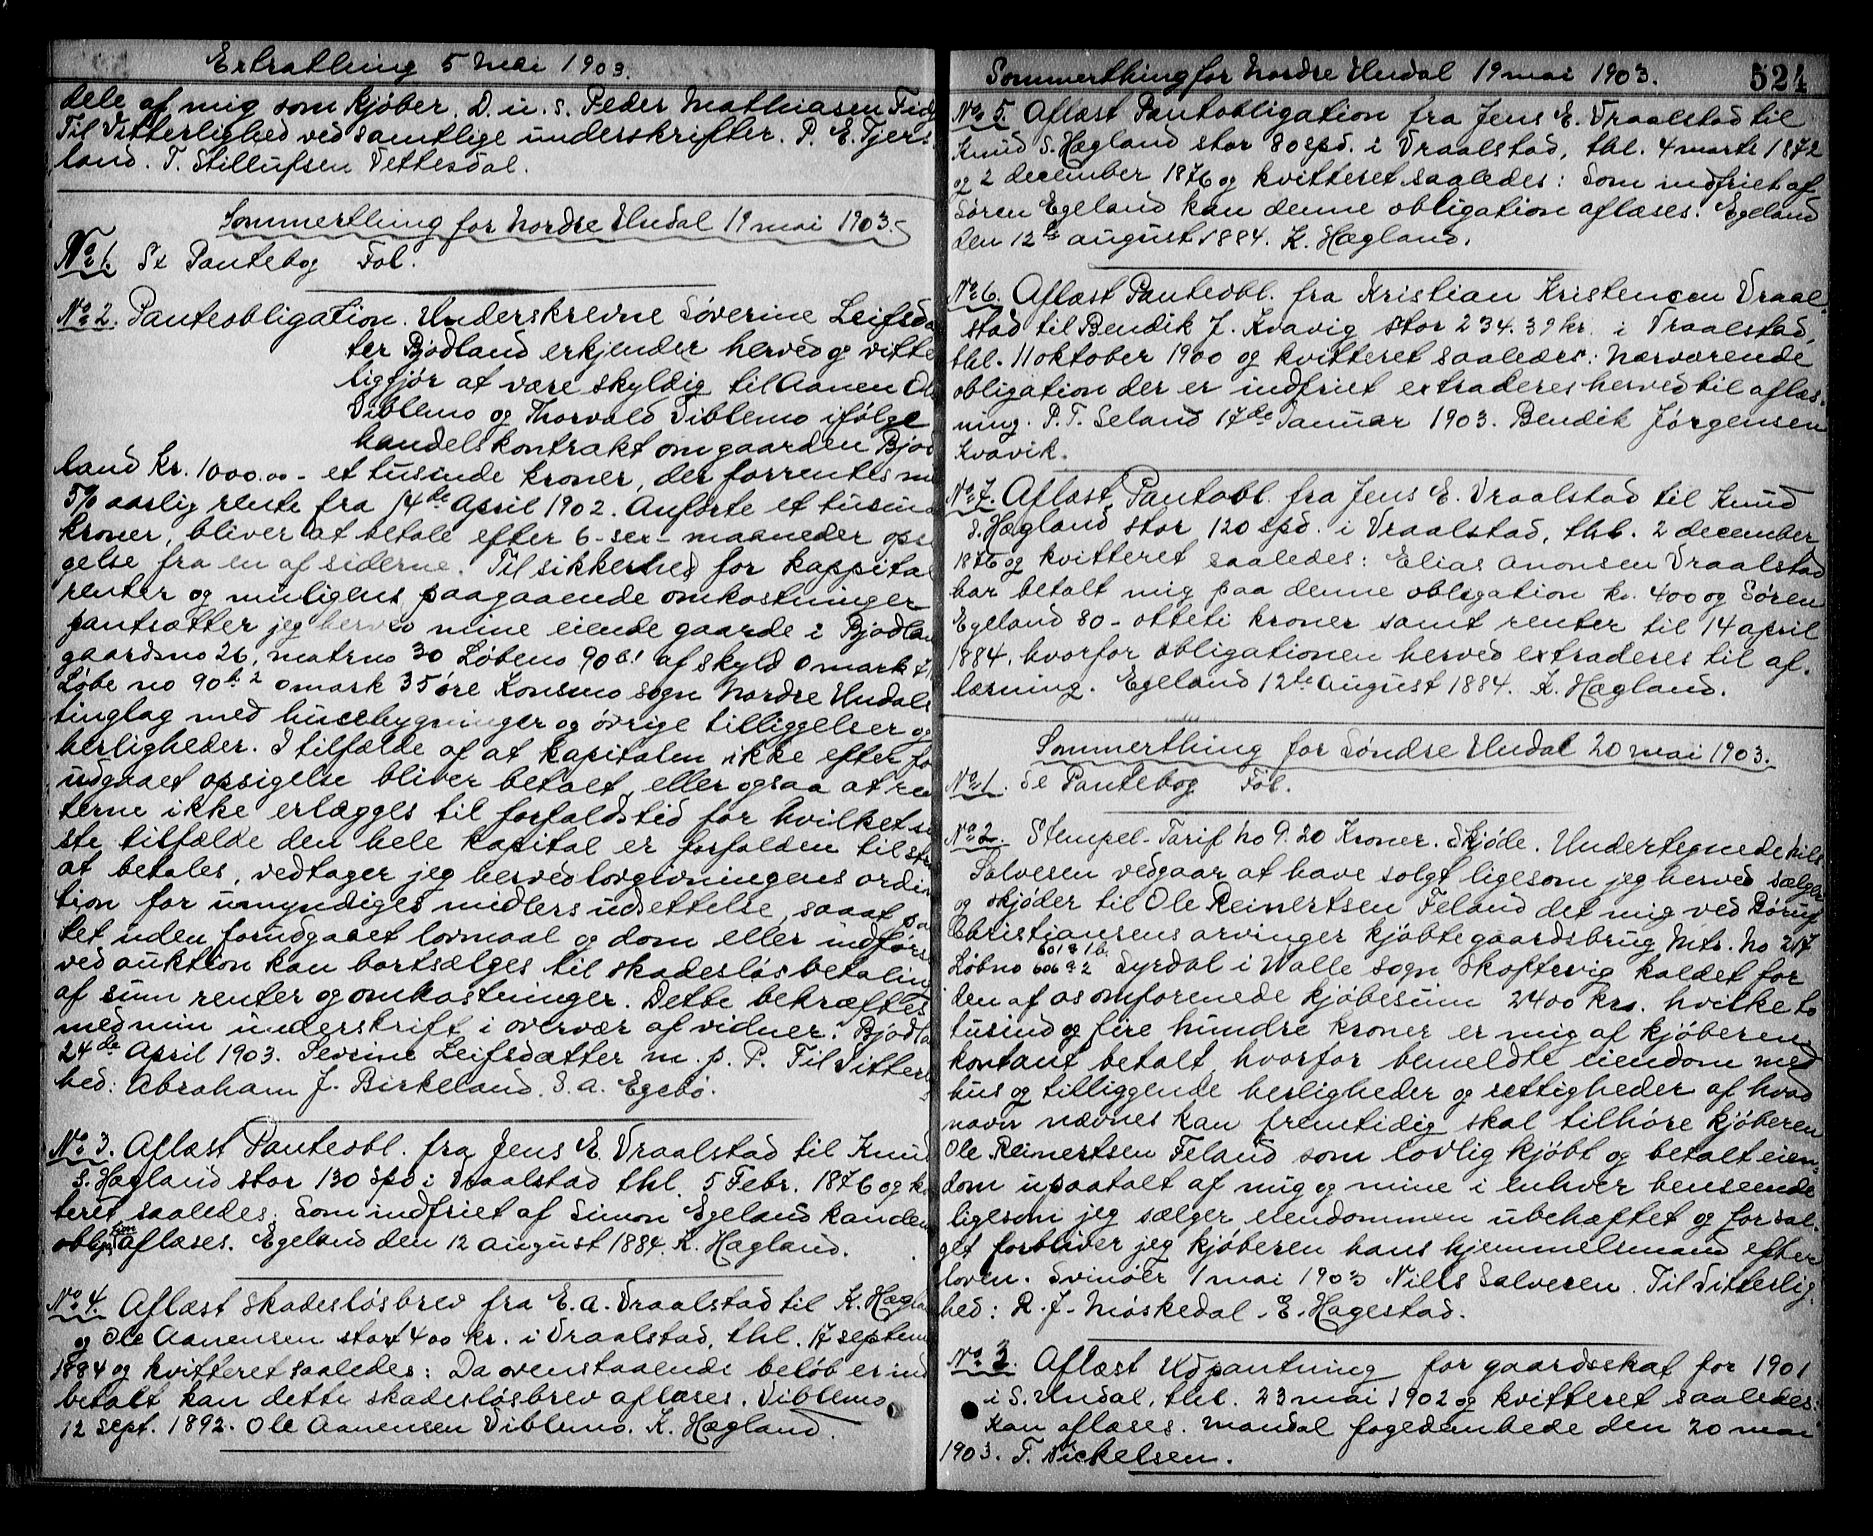 Extrathing 5 mai 1903.
dele af mig som kjøber. D. u. s. Peder Mathiasen
Til Vitterlighed ved samtlige underskrifter. P. E. Tjers
land. T. Stillufsen Vettesdal.
Sommerthing for Nordre Undal 19 mai 1903.
No 1. Se Pantebog Fol.
No 2. Panteobligation. Underskrevne Søverine Leifsda
ter Bjødland erkjender herved og vitte
liggjør at være skyldig til Aanen Ol
Viblemo og Thorvald Viblemo ifølge
handelskontrakt om gaarden Bjød
land kr. 1000.00 - et tusinde kroner, der forrentes m
5% aarlig rente fra 14de April 1902. Anførte et tusin
kroner, bliver at betale efter 6 - sex - maaneder opsi
gelse fra en af siderne. Til sikkerhed for kappital
renter og muligens paagaaende omkostninger
pantsætter jeg herved mine eiende gaarde i Bjødlan
gaardsno 26, matrno 30 Løbeno 90 b1 af skyld 0 mark
Løbe no 90 b2 0 mark 35 øre Konsmo sogn Nordre Undals
tinglag med husebygninger og øvrige tilliggelser og
herligheder. I tilfælde af at kapitalen ikke efter fo
udgaaet opsigelse bliver betalt, eller ogsaa at ren
terne ikke erlægges til forfaldstid for hvilket si
ste tilfælde den hele kapital er forfalden til str
at betales, vedtager jeg herved lovgivningens ordi
tion for umyndiges midlers udsettelse, saaat pa
tet uden forudgaaet lovmaal og dom eller indførs
ved auktion kan bortsælges til skadesløsbetaling
af sum renter og omkostninger. Dette bekræftes
med min underskrift i overvær af vidner. Bjødla
24de April 1903. Sevrine Leifsdatter m. p. P. Til Vitterl
hed: Abraham J. Birkeland. S. A. Egebø.
No 3. Aflæst Panteobl. fra Jens E. Vraalstad til Knud
S. Hægland stor 130 spd i Vraalstad thl. 5 Febr. 1876 og kv
teret saaledes: Som indfriet af Simon Egeland kan den
obligation aflæses. Egeland den 12 august 1884. K. Hægland.
No 4. Aflæst skadesløsbrev fra E. A. Vraalstad til K. Hæglan
og Ole Aanensen stort 400 kr. i Vraalstad, thl. 17 septem
1884 og kvitteret saaledes: Da ovenstaaende beløb er ind
betalt kan dette skadesløsbrev aflæses. Viblemo
12 sept. 1892. Ole Aanensen Viblemo. K. Hægland.
Sommerthing for Nordre Undal 19 mai 1903. 524
No 5. Aflæst Pantobligation fra Jens E. Vraalstad til
Knud S. Hægland stor 80 spd. i Vraalstad, thl. 4 marts 1872
og 2 december 1876 og kvitteret saaledes: Som indfriet af
Søren Egeland kan denne obligation aflæses. Egeland
den 12te august 1884. K. Hægland.
No 6. Aflæst Panteobl. fra Kristian Kristensen Vraal-
stad til Bendik J. Kvavig stor 234.39 kr. i Vraalstad,
thl. 11 oktober 1900 og kvitteret saaledes: Nærværende
obligation der er indfriet extraderes herved til aflæs-
ning. P. T. Seland 17de Januar 1903. Bendik Jørgensen
Kvavik.
No 7. Aflæst Pantobl. fra Jens E. Vraalstad til Knud
S. Hægland stor 120 spd. i Vraalstad, thl. 2 december
1876 og kvitteret saaledes: Elias Anonsen Vraalstad
har betalt mig paa denne obligation kr. 400 og Søren
Egeland 80 - otteti kroner samt renter til 14 april
1884, hvorfor obligationen herved extraderes til af-
læsning. Egeland 12te August 1884. K. Hægland.
Sommerthing for Søndre Undal 20 mai 1903.
No 1. Se Pantebog Fol.
No 2. Stempel-Tarif No 9. 20 Kroner. Skjøde. Undertegnede Nils
Salvesen vedgaar at have solgt ligesom jeg herved sælger
og skjøder til Ole Reinertsen Feland det mig ved Børuf
Christiansens arvinger kjøbte gaardsbrug Mtr. No 217
Løbno 606 a 2 Syrdal i Walle sogn Skoftevig kaldet for
den af os omforenede kjøbesum 2400 krs. hvilke to
tusind og fire hundre kroner er mig af kjøberen
kontant betalt, hvorfor bemeldte eiendom med
hus og tilliggende herligheder og rettigheder af hvad
navn nævnes kan fremtidig skal tilhøre kjøberen
Ole Reinertsen Feland som lovlig kjøbt og betalt eien-
dom upaatalt af mig og mine i enhver henseende
ligesom jeg sælger eiendommen ubehæftet og for sal-
get forbliver jeg kjøberen hans hjemmelsmand efter
loven. Svinøer 1 mai 1903 Nills Salvesen. Til Vitterlig-
hed: R. J. Møskedal. E. Hagestad.
No 3. Aflæst Udpantning for gaardsskat for 1901
i S. Undal, thl. 23 mai 1902 og kvitteret saaledes:
Kan aflæses. Mandal fogedembede den 20 mai
1903. T. Nickelsen.